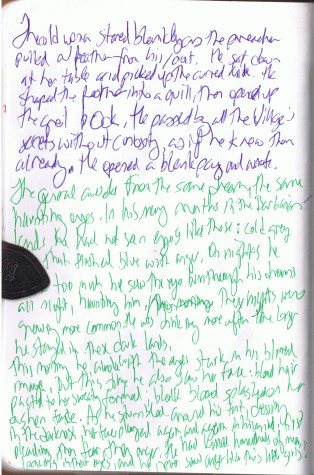 The old woman stared blankly as the preacher
pulled a feather from his coat. He sat down
at her table and picked up the curved knife. He
shaped the feather into a quill, then opened up
the great book. He passed by all the Village's
secrets without curiosity, as if he knew them
already. He opened a blank page and wrote.
The general awoke from the same dream, the same
haunting eyes. In his many months in the Barbarian
lands he had not seen eyes like those: cold grey
that flashed blue with anger. On nights he
too much he saw the eyes burn through his dreams
all night, haunting him. They nights were
growing more common. He was drinking more often the longer
he stayed in these dark lands.
This morning he awoke with the eyes stark in his blurred
mind. But this time he also saw her face: blond hair
pasted to her sweating forehead, black blood splashed on her
ashen face. As he stumbled around his tent, dressing
in the darkness, her face played again and again in his mind:
pleading, then fear, then anger. He had killed hundreds of men,
in their eyes, and he never saw any like this